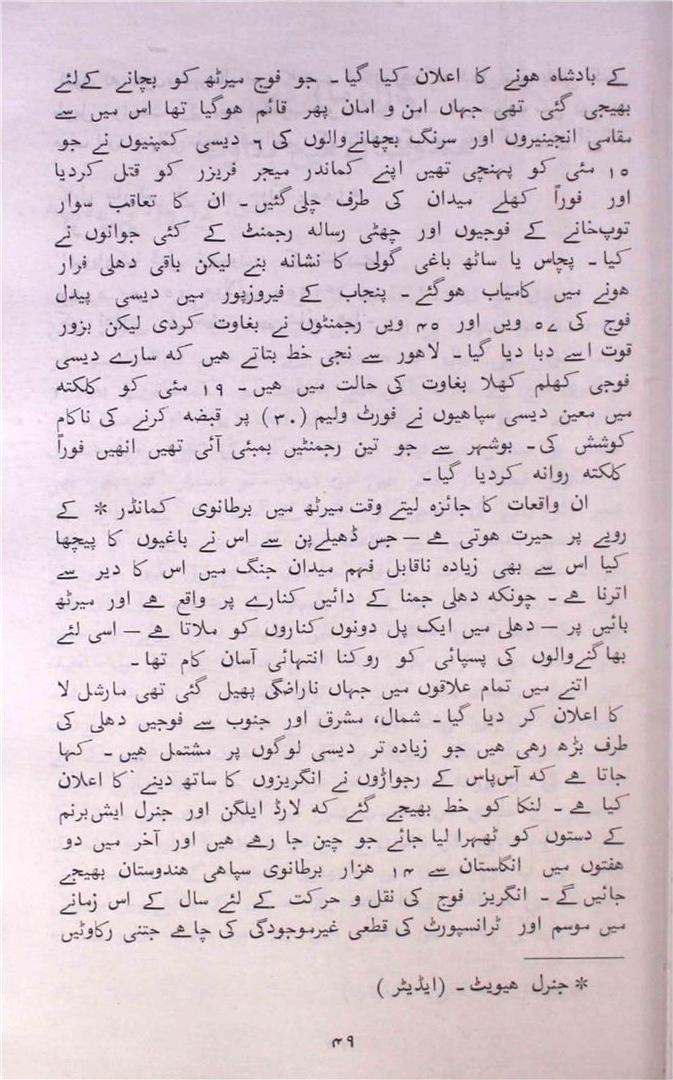 کے بادشاہ ہونے کا اعلان کیا گیا۔ جو فوج میرٹھ کو بچانے کےلئے
بھیجی گئی تھی جہاں امن و امان پھر قائم ہوگیا تھا اس میں سے
مقامی انجینیروں اور سرنگ بچھانےوالوں کی ۶ دیسی کمپنیوں نے جو
۱۵ مئی کو پہنچی تھیں اپنے کماندر میجر فریزر کو قتل کردیا
اور فوراً کھلے میدان کی طرف چلی گئیں۔ ان کا تعاقب سوار
توپخانے کے فوجیوں اور چھٹی رسالہ رجمنٹ کے کئی جوانوں نے
کیا۔ پچاس یا ساٹھ باغی گولی کا نشانہ بنے لیکن باقی دہلی فرار
ہونے میں کامیاب ہوگئے۔ پنجاب کے فیروزپور میں دیسی پیدل
فوج کی ۵۷ ویں اور ۴۵ ویں رجمنٹوں نے بغاوت کردی لیکن بزور
قوت اسے دبا دیا گیا۔ لاہور سے نجی خط بتاتے ہیں کہ سارے دیسی
فوجی کھلم کھلا بغاوت کی حالت میں ہیں۔ ۱۹ مئی کو کلکتہ
میں معین دیسی سپاہیوں نے فورٹ ولیم (۳۰) پر قبضہ کرنے کی ناکام
کوشش کی۔ بوشہر سے جو تین رجمنٹیں بمبئی آئی تھیں انھیں فوراً
کلکتہ روانہ کردیا گیا۔
ان واقعات کا جائزہ لیتے وقت میرٹھ میں برطانوی کمانڈر * کے
رویے پر حیرت ہوتی ہے — جس ڈھیلےپن سے اس نے باغیوں کا پیچھا
کیا اس سے بھی زیادہ ناقابل فہم میدان جنگ میں اس کا دیر سے
اترنا ہے۔ چونکہ دہلی جمنا کے دائیں کنارے پر واقع ہے اور میرٹھ
بائیں پر — دہلی میں ایک پل دونوں کناروں کو ملاتا ہے — اسی لئے
بھاگنےوالوں کی پسپائی کو روکنا انتہائی آسان کام تھا۔
اتنے میں تمام علاقوں میں جہاں ناراضگی پھیل گئی تھی مارشل لا
کا اعلان کر دیا گیا۔ شمال، مشرق اور جنوب سے فوجیں دہلی کی
طرف بڑھ رہی ہیں جو زیادہ تر دیسی لوگوں پر مشتمل ہیں۔ کہا
جاتا ہے کہ آسپاس کے رجواڑوں نے انگریزوں کا ساتھ دینے کا اعلان
کیا ہے۔ لنکا کو خط بھیجے گئے کہ لارڈ ایلگن اور جنرل ایشبرنم
کے دستوں کو ٹھہرا لیا جائے جو چین جا رہے ہیں اور آخر میں دو
ہفتوں میں انگلستان سے ۱۴ ہزار برطانوی سپاہی ہندوستان بھیجے
جائیں گے۔ انگریز فوج کی نقل و حرکت کے لئے سال کے اس زمانے
میں موسم اور ٹرانسپورٹ کی قطعی غیرموجودگی کی چاہے جتنی رکاوٹیں
* جنرل ہیویٹ۔ (ایڈیٹر)
۴۹